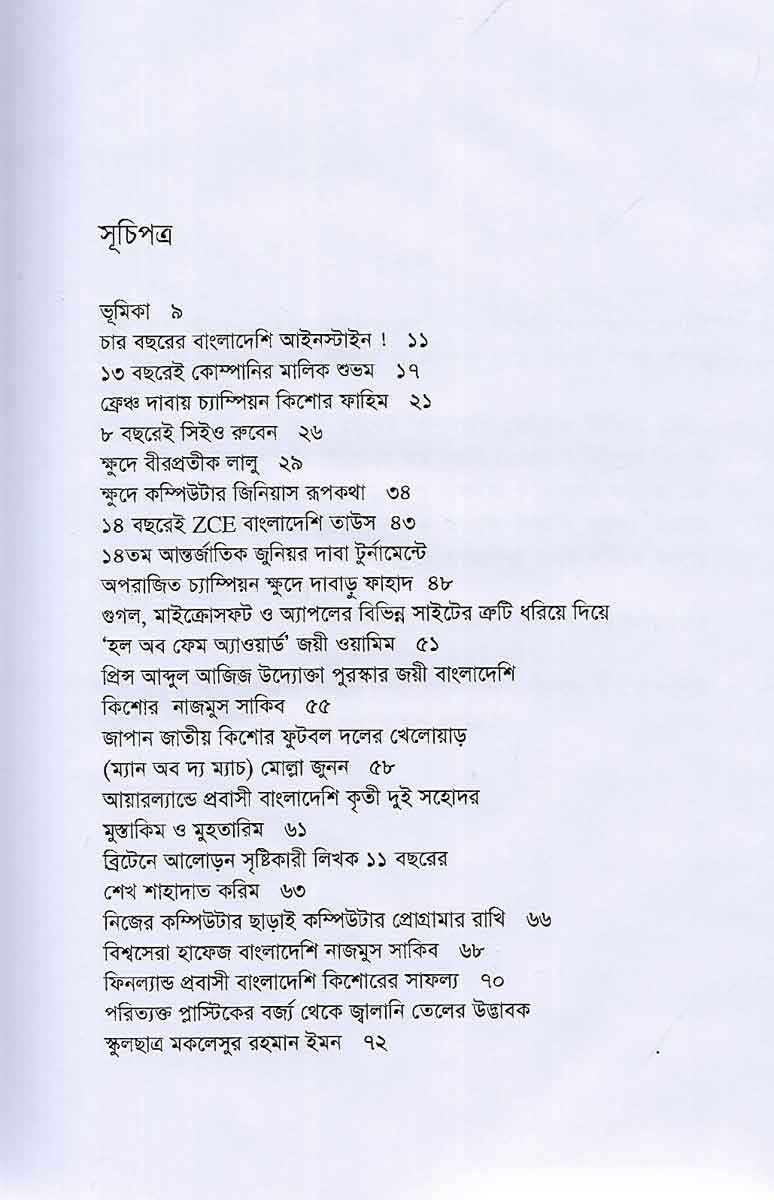 সূচিপত্র
ভূমিকা ৯
চার বছরের বাংলাদেশি আইনস্টাইন ! ১১
১৩ বছরেই কোম্পানির মালিক শুভম ১৭
ফ্রেঞ্চ দাবায় চ্যাম্পিয়ন কিশোর ফাহিম ২১
৮ বছরেই সিইও রুবেন ২৬
ক্ষুদে বীরপ্রতীক লালু ২৯
ক্ষুদে কম্পিউটার জিনিয়াস রূপকথা ৩৪
১৪ বছরেই ZCE বাংলাদেশি তাউস ৪৩
১৪তম আন্তর্জাতিক জুনিয়র দাবা টুর্নামেন্টে
অপরাজিত চ্যাম্পিয়ন ক্ষুদে দাবাড়ু ফাহাদ ৪৮
গুগল, মাইক্রোসফট ও অ্যাপলের বিভিন্ন সাইটের ত্রুটি ধরিয়ে দিয়ে
‘হল অব ফেম অ্যাওয়ার্ড’ জয়ী ওয়ামিম ৫১
প্রিন্স আব্দুল আজিজ উদ্যোক্তা পুরস্কার জয়ী বাংলাদেশি
কিশোর নাজমুস সাকিব ৫৫
জাপান জাতীয় কিশোর ফুটবল দলের খেলোয়াড়
(ম্যান অব দ্য ম্যাচ) মোল্লা জুনন ৫৮
আয়ারল্যান্ডে প্রবাসী বাংলাদেশি কৃতী দুই সহোদর
মুস্তাকিম ও মুহতারিম ৬১
ব্রিটেনে আলোড়ন সৃষ্টিকারী লিখক ১১ বছরের
শেখ শাহাদাত করিম ৬৩
নিজের কম্পিউটার ছাড়াই কম্পিউটার প্রোগ্রামার রাখি ৬৬
বিশ্বসেরা হাফেজ বাংলাদেশি নাজমুস সাকিব ৬৮
ফিনল্যান্ড প্রবাসী বাংলাদেশি কিশোরের সাফল্য ৭০
পরিত্যক্ত প্লাস্টিকের বর্জ্য থেকে জ্বালানি তেলের উদ্ভাবক
স্কুলছাত্র মকলেসুর রহমান ইমন ৭২